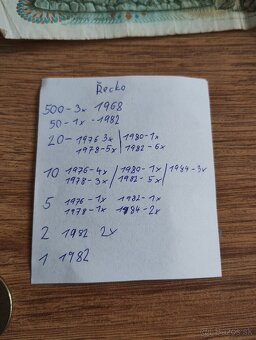 Řecko
500-3x 1968
50-1x-1982
20-1976 3x/1980-1x
1978-5x/1982-6x
10 1976-4x/1980-1x/1984-3x
1978-3x/1982-5x/
5 1976-1x 1982-1x
1978-1x 1984-2x
2 1982 2x
1 1982
bazos.sk